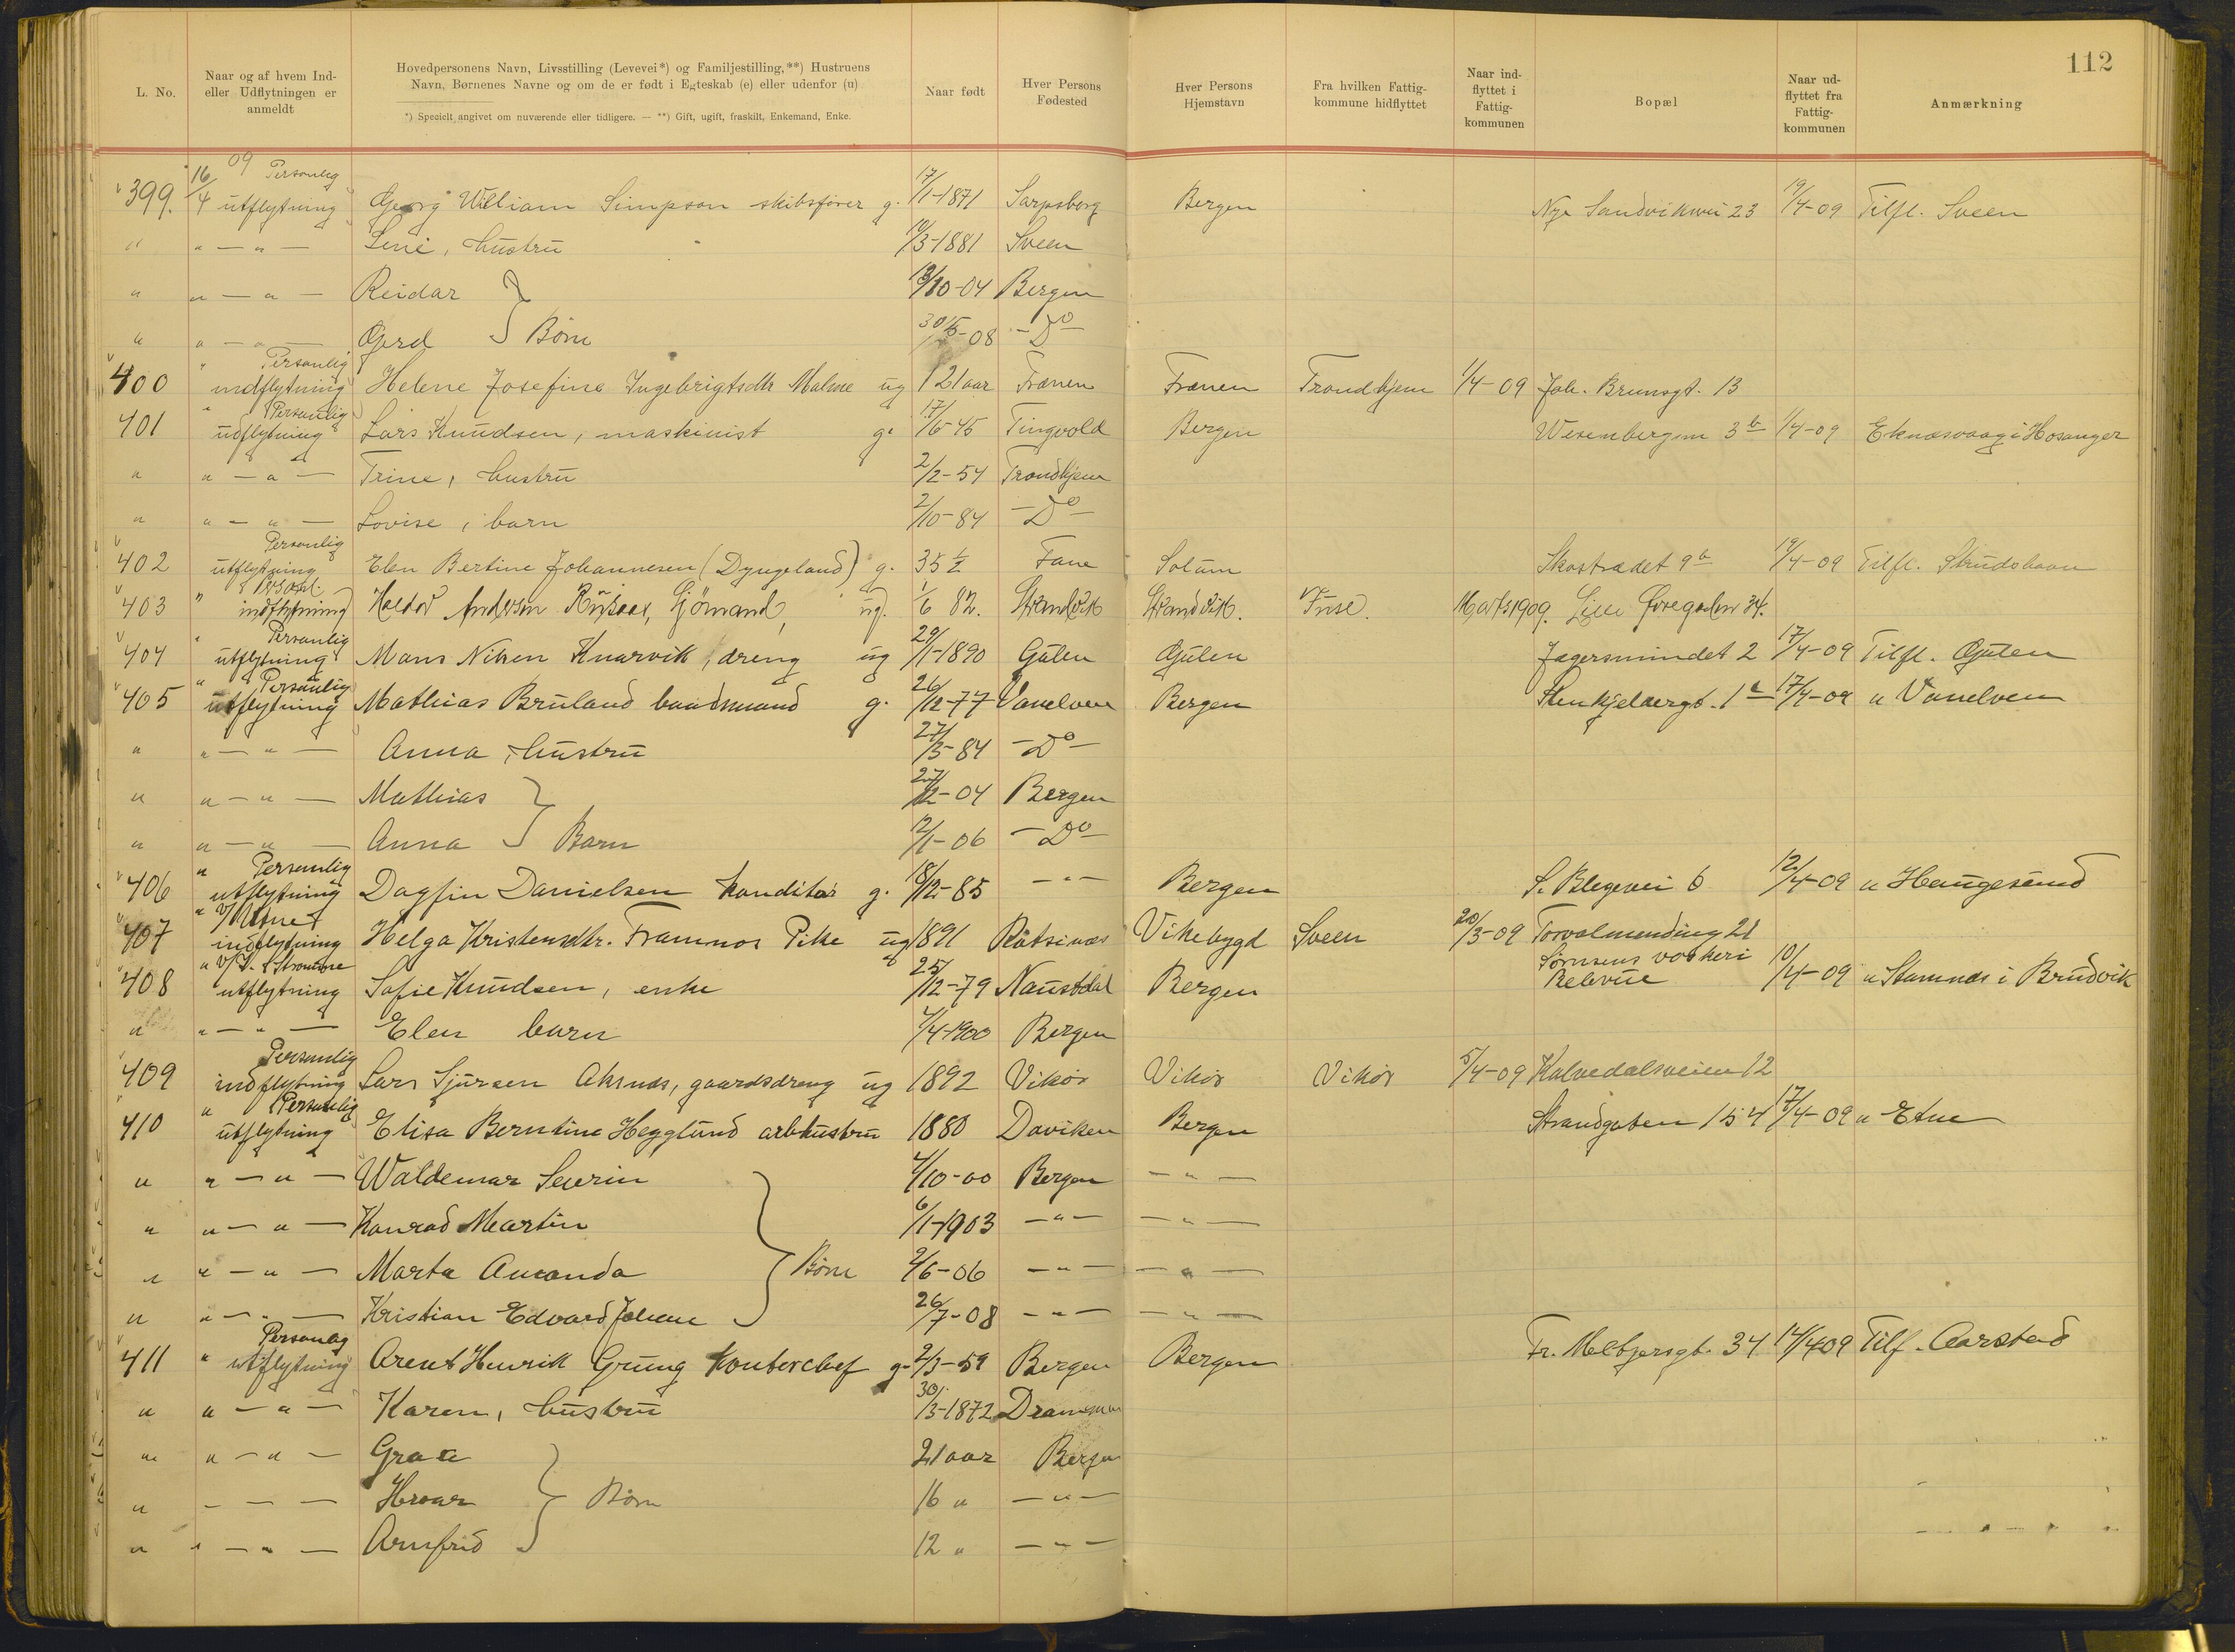 112
L. No.
Naar og af hvem Ind-
eller Udflytningen er
anmeldt
Hovedpersonens Navn, Livsstilling (Levevei*) og Familjestilling,**) Hustruens
Navn, Børnenes Navne og om de er født i Egteskab (e) eller udenfor (u)
*) Specielt angivet om nuværende eller tidligere. — **) Gift, ugift, fraskilt, Enkemand, Enke.
Naar født
Hver Persons
Fødested
Hver Persons
Hjemstavn
Fra hvilken Fattig-
kommune hidflyttet
Naar ind-
flyttet i
Fattig-
kommunen
Bopæl
Naar ud-
flyttet fra
Fattig-
kommunen
Anmærkning
16/4 09 Personlig
399. utflytning Georg William Simpson skibsfører g. 17/1-1871 Sarpsborg Bergen Nye Sandviksvei 23 19/4-09 Tilfl. Sveen
" " — " — Line, hustru 10/3-1881 Sveen
" " — " — Reidar } 10-04 Bergen
" " — " — Gerd } Børn 30/5-08 - Do -
" Personlig
400 indflytning Helene Josefine Ingebrigtsdtr Malme ug 21 aar Frænen Frænen Trondhjem 1/4-09 Joh. Brunsgt. 13
" Personlig
401 udflytning Lars Knudsen, maskinist g. 17/6-45 Tingvold Bergen Wesembergsm 3b 1/4-09 Eknæsvaag i Hosanger
" " — " — Trine, hustru 2/2-54 Trondhjem
" " — " — Lovise, barn 2/10-84 - Do -
Personlig
402 utflytning Elen Bertine Johannesen (Dyngeland) g. 35 1/2 Fane Solum Skostrædet 9b 19/4-09 Tilfl. Skudshavn
" Personl.
403 indflytning Haldor Andersen Sjömand, ug. 1/6 82. Strandvik Strandvik. Fuse. Marts 1909. Lille Øvregaden 34.
" Personlig
404 utflytning Mons Nilsen Knarvik, dreng ug 29/1-1890 Gulen Gulen Jægersmindet 2 17/4-09 Tilfl. Gulen
" Personlig
405 utflytning Mathias Bruland baadmand g. 26/12-77 Vanelven Bergen Stenkjelbergt. 1 17/4-09 " Vanelven
" " — " — Anna, hustru 27/3-84 - Do -
" " — " — Mathias } 27/12-04 Bergen
" " — " — Anna } Barn 12/1-06 - Do -
" Personlig
406 utflytning Dagfin Danielsen konditor g. 18/12-85 — " — Bergen S. Blegevei 6 12/4-09 " Haugesund
" v/
407 indflytning Helga Kristensdtr. Framnes Pike ug 1891 Vikebygd Sveen 20/3-09 Torvalmending 21
" v/
408 utflytning Sofie Knudsen, enke 25/12-79 Naustdal Bergen Sørnsens vaskeri Belevue 10/4-09 " Stamnes i Brudvik
" " — " — Elen barn 7/4-1900 Bergen
Personlig
409 indflytning Lars Sjursen Aksnes, gaardsdreng ug 1892 Vikør Vikør Vikør 5/4-09 Kalvedalsveien 12
" Personlig
410 utflytning Elisa Berntine Hegglund arbhustru 1880 Daviken Bergen Strandgaten 154 17/4-09 " Etne
" " — " — Waldemar Severin } 4/10-00 Bergen — " —
" " — " — Konrad Martin 6/1-1903 — " — — " —
" " — " — Marta Amanda } Børn 2/6-06 — " — — " —
" " — " — Kristian Edvard Johan 26/7-08 — " — — " —
Personlig
411 " utflytning Arent Henrik Grung kontorchef g. 2/3-59 Bergen Bergen Fr. Meltzersgt. 34 14/4-09 Tilf. Aarstad
" " — " — Karen, hustru 30/3-1872 Drammen
" " — " — 21 aar Bergen
" — — — Hroar } Børn 16 " — " —
" " — " — Arnfrid 12 " — " —